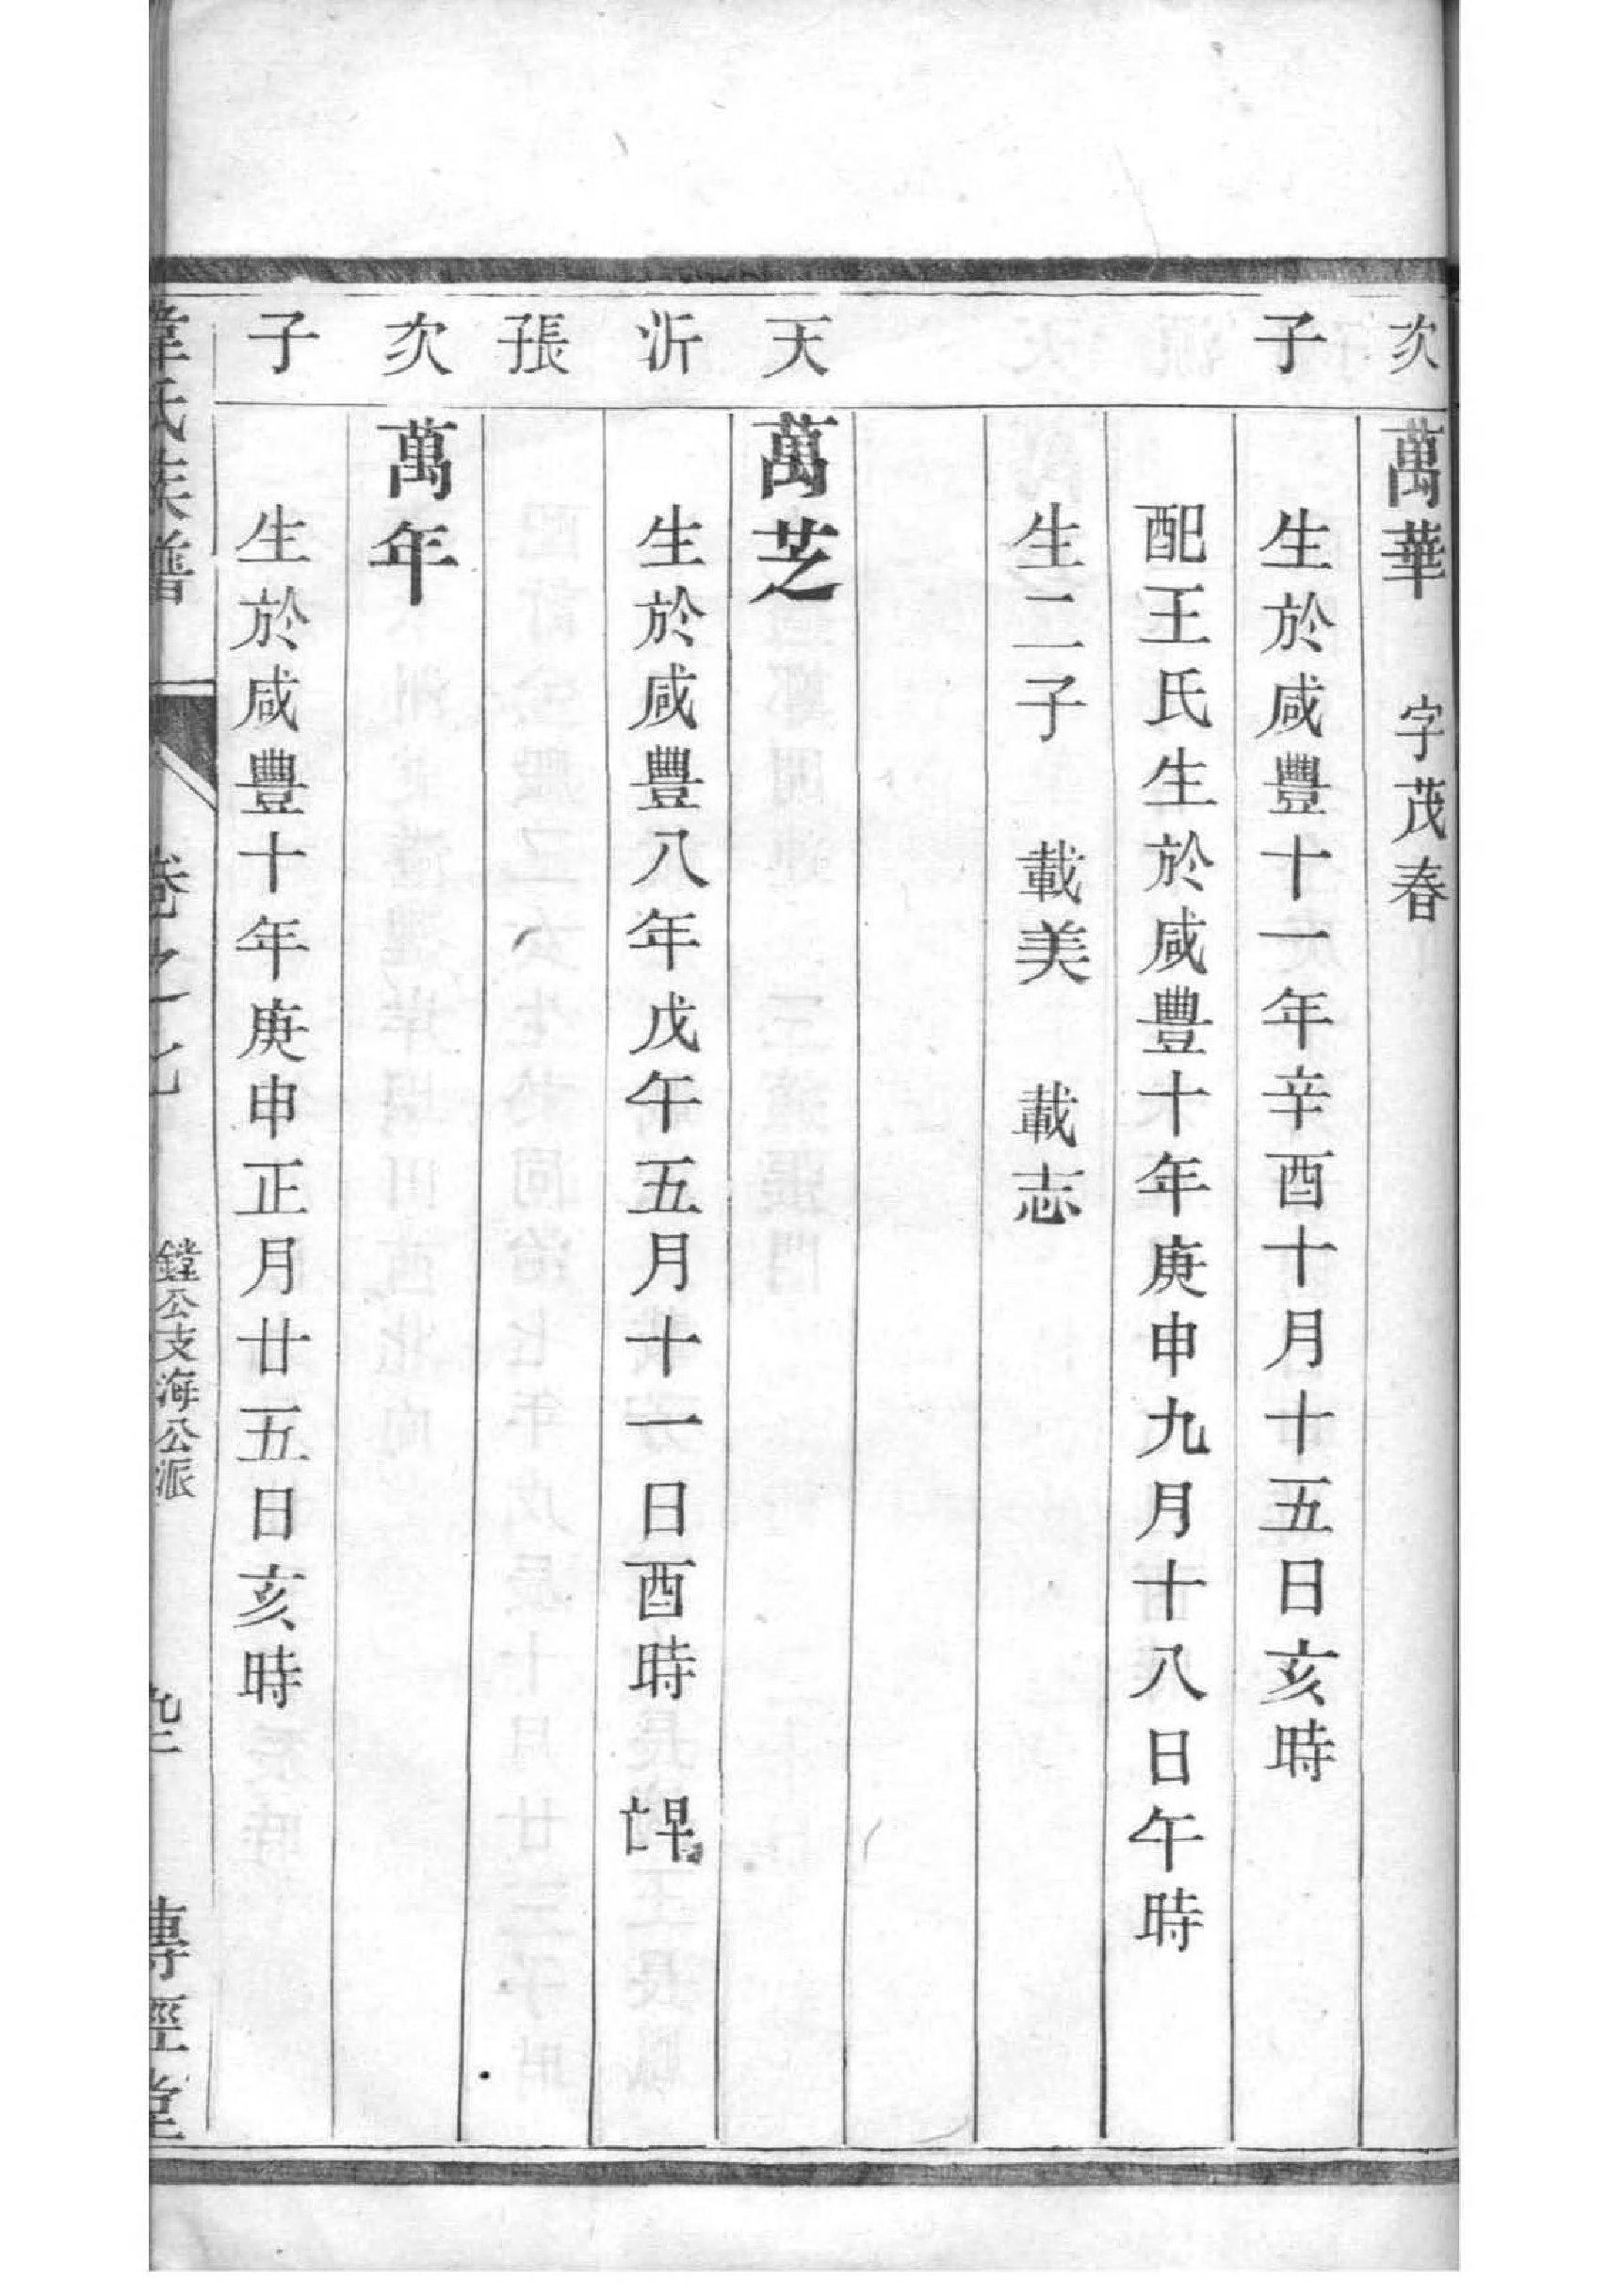 次 萬華 字茂春
子 生於咸豐十一年辛酉十月十五日亥時
配王氏生於咸豐十年庚申九月十八日午時
生二子 載美 載志
天 萬芝
沂 生於咸豐八年戊午五月十一日酉時
張
次 萬年
子 生於咸豐十年庚申正月廿五日亥時
韋氏族譜 卷之七 鏜公支海公派 傳經堂